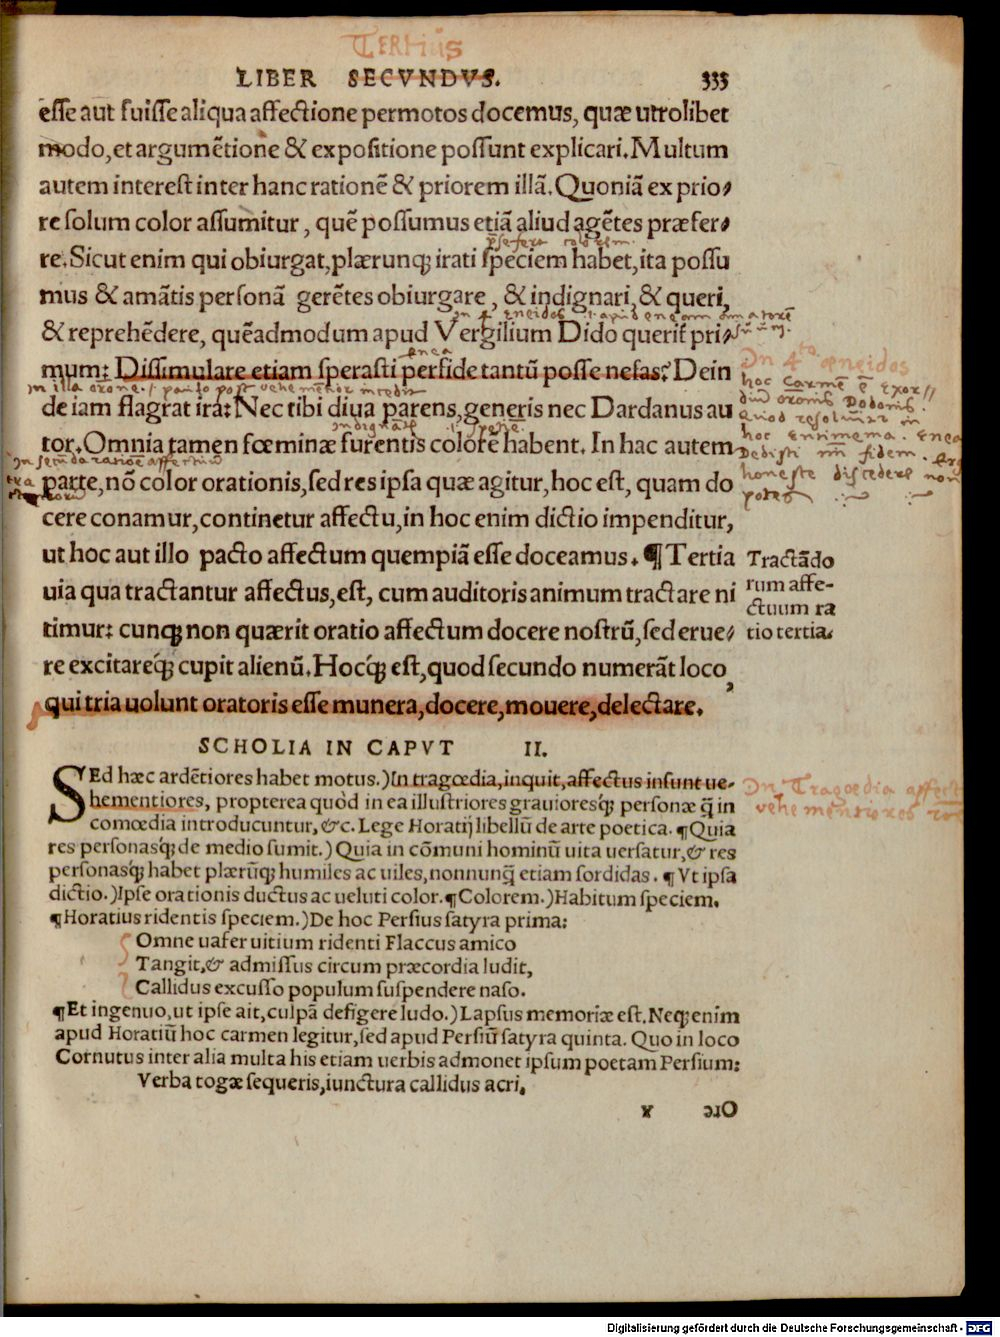 Tertius
LIBER SECVNDVS. 333
esse aut fuisse aliqua affectione permotos docemus, quæ utrolibet
modo, et argumētione & expositione possunt explicari. Multum
autem interest inter hanc rationē & priorem illā. Quoniā ex prio⸗
re solum color assumitur, quē possumus etiā aliud agētes præfer⸗
re. Sicut enim qui obiurgat, plærunq; irati speciem habet, ita possu
mus & amātis personā gerētes obiurgare, & indignari, & queri,
& reprehēdere, quēadmodum apud Vergilium Dido querit̃ pri⸗
mum: Dissimulare etiam sperasti perfide tantū posse nefas? Dein
enea
de iam flagrat ira: Nec tibi diua parens, generis nec Dardanus au
tor. Omnia tamen fœminæ furentis colorē habent. In hac autem
parte, nō color orationis, sed res ipsa quæ agitur, hoc est, quam do
cere conamur, continetur affectu, in hoc enim dictio impenditur,
ut hoc aut illo pacto affectum quempiā esse doceamus. ¶ Tertia
uia qua tractantur affectus, est, cum auditoris animum tractare ni
timur: cunq; non quærit oratio affectum docere nostrū, sed erue⸗
re excitareq́; cupit alienū. Hocq́; est, quod secundo numerāt loco,
qui tria uolunt oratoris esse munera, docere, mouere, delectare.
In 4to æneidos
hoc Carmē ē Exor//
hoc Entimema. Enea
honeste discedere non
potes
Tractādo
rum affe-
ctuum ra
tio tertia.
SCHOLIA IN CAPVT II.
SEd hæc ardētiores habet motus.) In tragœdia, inquit, affectus insunt ue-
hementiores, propterea quòd in ea illustriores grauioresq; personæ q̃ in
comœdia introducuntur, &c. Lege Horatij libellū de arte poetica. ¶ Quia
res personasq́; de medio sumit.) Quia in cōmuni hominū uita uersatur, & res
personasq́; habet plærūq; humiles ac uiles, nonnunq̃ etiam sordidas. ¶ Vt ipsa
dictio.) Ipse orationis ductus ac ueluti color. ¶ Colorem.) Habitum speciem.
¶ Horatius ridentis speciem.) De hoc Persius satyra prima:
Omne uafer uitium ridenti Flaccus amico
Tangit, & admissus circum præcordia ludit,
Callidus excusso populum suspendere naso.
¶ Et ingenuo, ut ipse ait, culpā defigere ludo.) Lapsus memoriæ est. Neq; enim
apud Horatiū hoc carmen legitur, sed apud Persiū satyra quinta. Quo in loco
Cornutus inter alia multa his etiam uerbis admonet ipsum poetam Persium:
Verba togæ sequeris, iunctura callidus acri,
x Ore
In Tragœdia affect
vehementiores
Digitalisierung gefördert durch die Deutsche Forschungsgemeinschaft - DFG